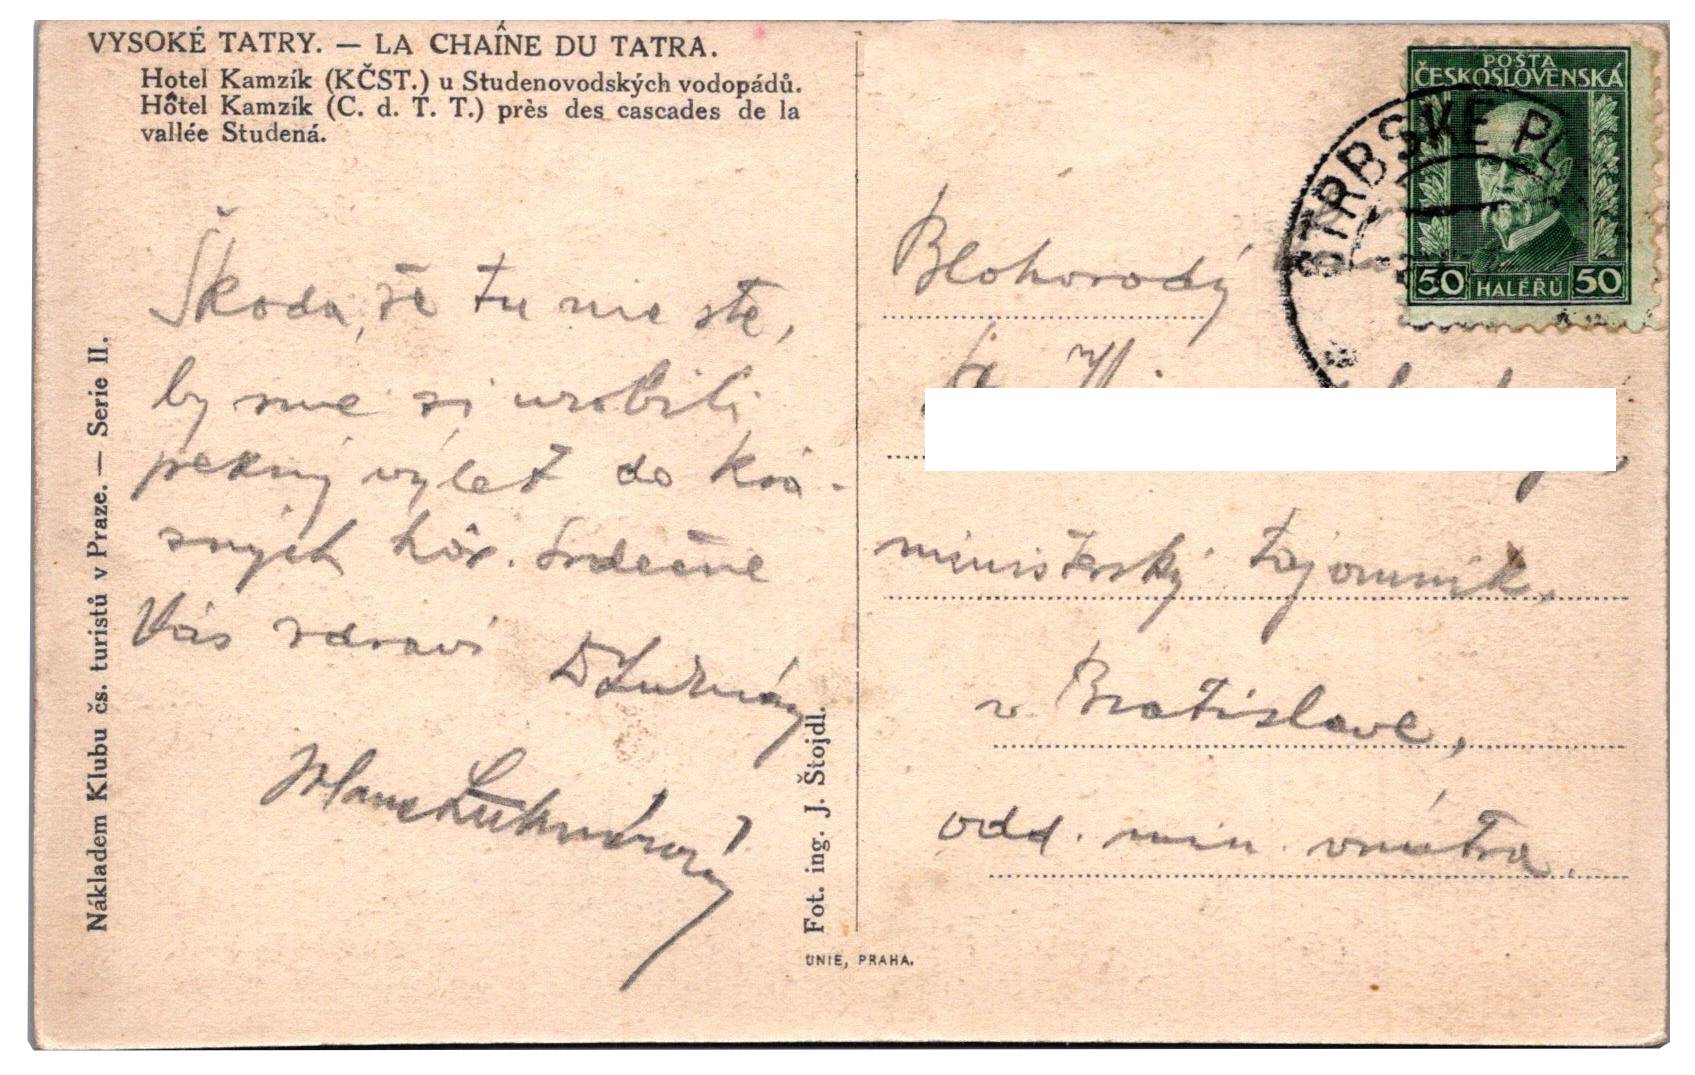 VYSOKÉ TATRY. — LA CHAÎNE DU TATRA.
Hotel Kamzík (KČST.) u Studenovodských vodopádů.
Hôtel Kamzík (C. d. T. T.) près des cascades de la
vallée Studená.
Škoda, že tu nie ste,
by sme si urobili
pekný výlet do krá-
snych hôr. Srdečne
Vás zdraví
Nákladem Klubu čs. turistů v Praze. — Serie II.
Fot. ing. J. Štojdl.
UNIE, PRAHA.
POŠTA
ČESKOSLOVENSKÁ
50 HALÉŘŮ 50
ŠTRBSKÉ PL
Blahorodý
ministerský tajomník,
v Bratislave,
odd. min. vnútra.